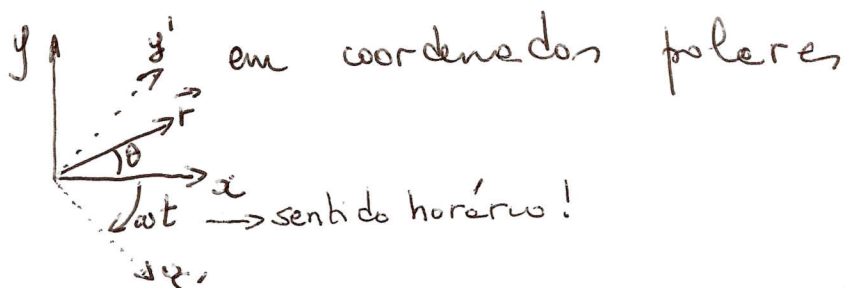 y y' em coordenadas polares
r
θ
x
ωt → sentido horário!
x'